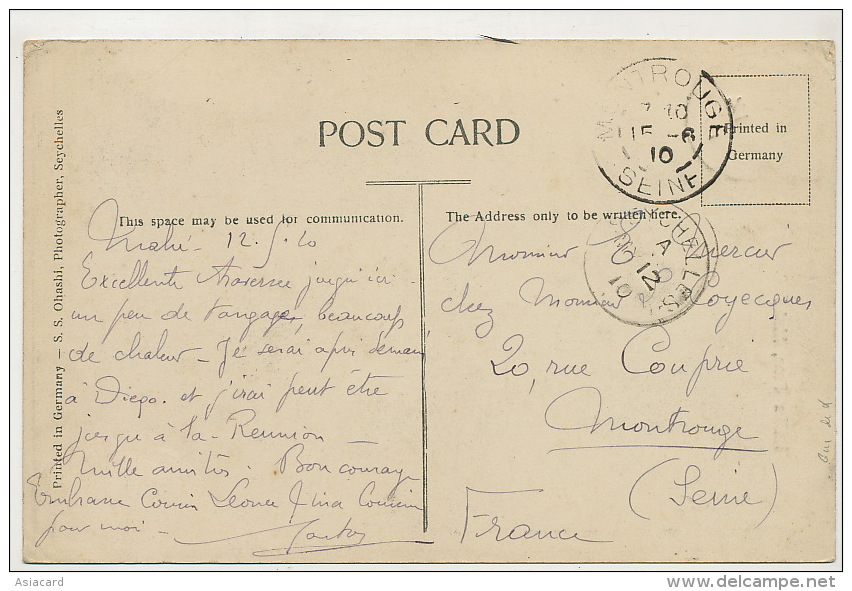 POST CARD
Printed in Germany — S. S. Ohashi, Photographer, Seychelles
This space may be used for communication.
The Address only to be written here.
Printed in
Germany
MONTROUGE
15 -6
10
SEINE
SEYCHELLES
A
12
10
Mahé - 12.5.10
Excellente traversée jusqu'ici
un peu de tangage, beaucoup
de chaleur - Je serai après demain
à Diego. et j'irai peut être
jusqu'à la Réunion -
Mille amitiés. Bon courage
Embrasse Cousin Léonce
pour moi -
Monsieur Mercier
chez Monsieur
20, rue Couprie
Montrouge
(Seine)
France
Asiacard
delcampe.net